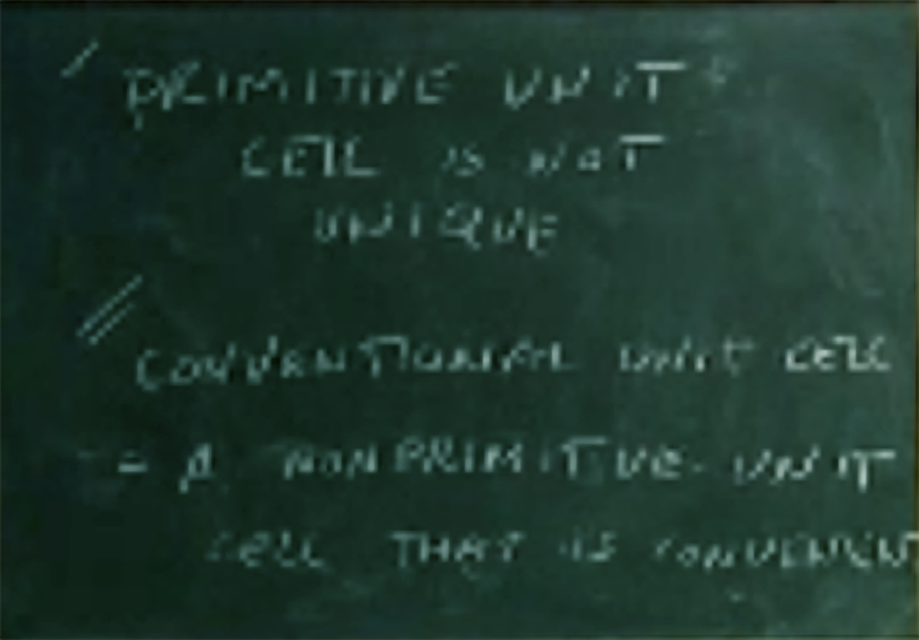 PRIMITIVE UNIT
CELL IS NOT
UNIQUE
CONVENTIONAL UNIT CELL
- A NONPRIMITIVE UNIT
CELL THAT IS CONVENIENT